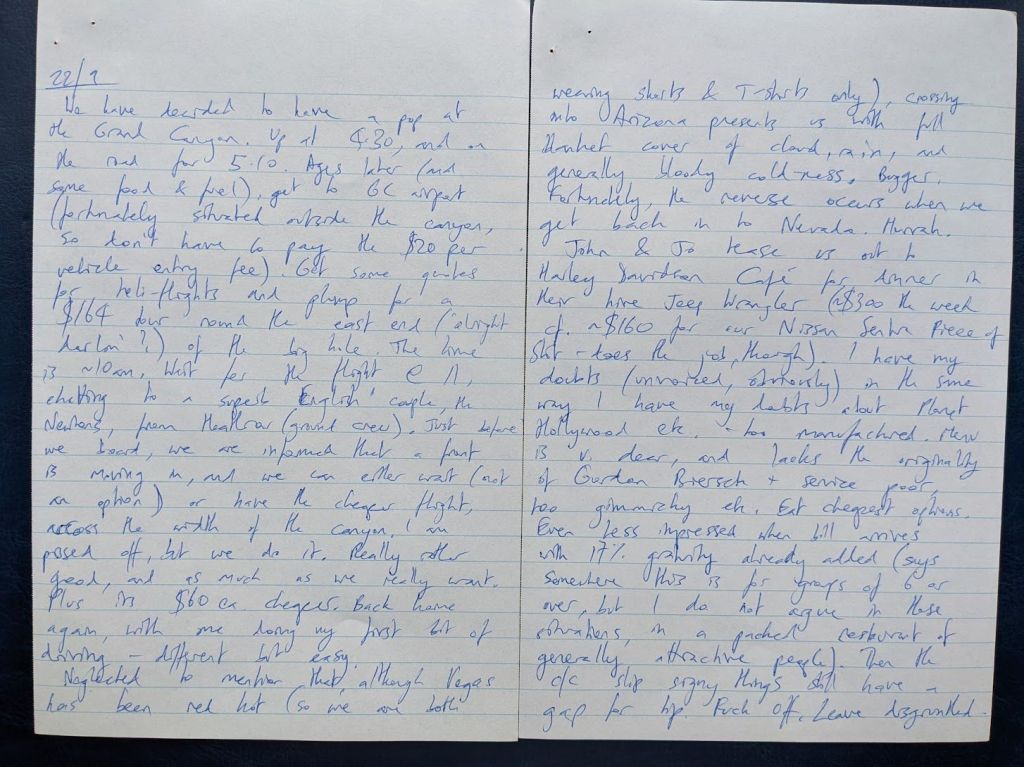 22/9
We have decided to have a pop at
the Grand Canyon. Up at 4:30, and on
the road for 5:10. Ages later (and
some food & fuel), get to GC airport
(fortunately situated outside the canyon,
so don't have to pay the $20 per
vehicle entry fee). Get some quotes
for heli-flights and plump for a
$164 tour round the east end ('alright
darlin'?) of the big hole. The time
is ~10am. Wait for the flight @ 11,
chatting to a superb English couple, the
Newtons, from Heathrow (ground crew). Just before
we board, we are informed that a front
is moving in, and we can either wait (not
an option) or have the cheaper flight,
across the width of the canyon. I am
pissed off, but we do it. Really rather
good, and as much as we really want.
Plus it's $60 ea. cheaper. Back home
again, with me doing my first bit of
driving – different but easy.
Neglected to mention that, although Vegas
has been red hot (so we are both
wearing shorts & T-shirts only), crossing
into Arizona presents us with full
blanket cover of cloud, rain, and
generally bloody cold-ness. Bugger.
Fortunately, the reverse occurs when we
get back in to Nevada. Hurrah.
John & Jo tease us out to
Harley Davidson Café for dinner in
their hire Jeep Wrangler (~$300 the week
cf. ~$160 for our Nissan Sentra Piece of
Shit - does the job, though). I have my
doubts (unvoiced, obviously) in the same
way I have my doubts about Planet
Hollywood etc. - too manufactured. Menu
is v. dear, and lacks the originality
of Gordon Biersch + service poor,
too gimmicky etc. Eat cheapest options.
Even less impressed when bill arrives
with 17% gratuity already added (says
somewhere this is for groups of 6 or
over, but I do not argue in these
situations, in a packed restaurant of
generally attractive people). Then the
c/c slip signy things still have a
gap for tip. Fuck Off. Leave disgruntled.